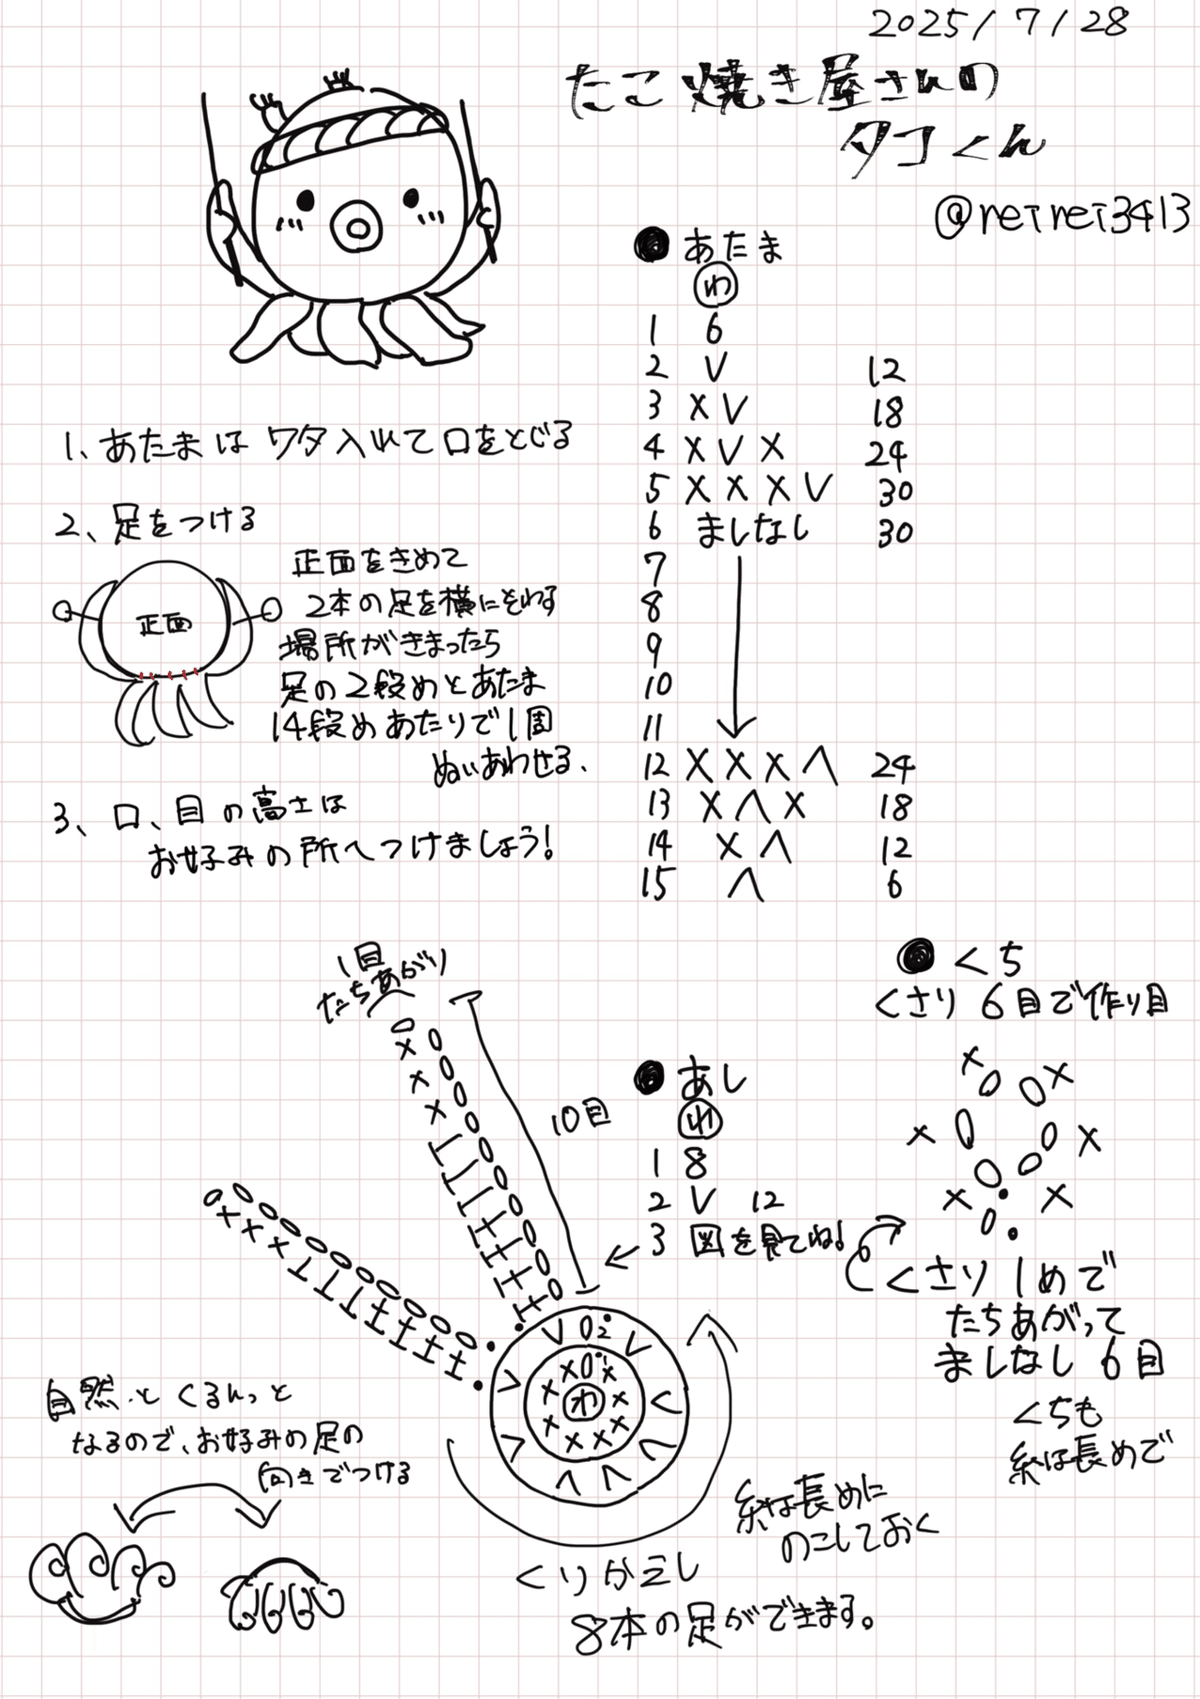 2025/7/28
たこ焼き屋さんの
タコくん
@reirei3413
●あたま
わ
1 6
2 V 12
3 X V 18
4 X V X 24
5 X X X V 30
6 ましなし 30
7
8
9
10
11
12 X X X Λ 24
13 X Λ X 18
14 X Λ 12
15 Λ 6
1、あたまは ワタ入れて口をとじる
2、足をつける
正面
正面をきめて
2本の足を横にそわす
場所がきまったら
足の2段めとあたま
14段めあたりで1周
ぬいあわせる、
3、口、目の高さは
お好みの所へつけましょう!
1目
たちあがり
10目
●あし
わ
1 8
2 V 12
3 図を見てね!
●くち
くさり 6目で作り目
くさり1めで
たちあがって
ましなし 6目
くちも
糸は長めで
わ
自然とくるんっと
なるので、お好みの足の
向きでつける
糸は長めに
のこしておく
くりかえし
8本の足ができます。